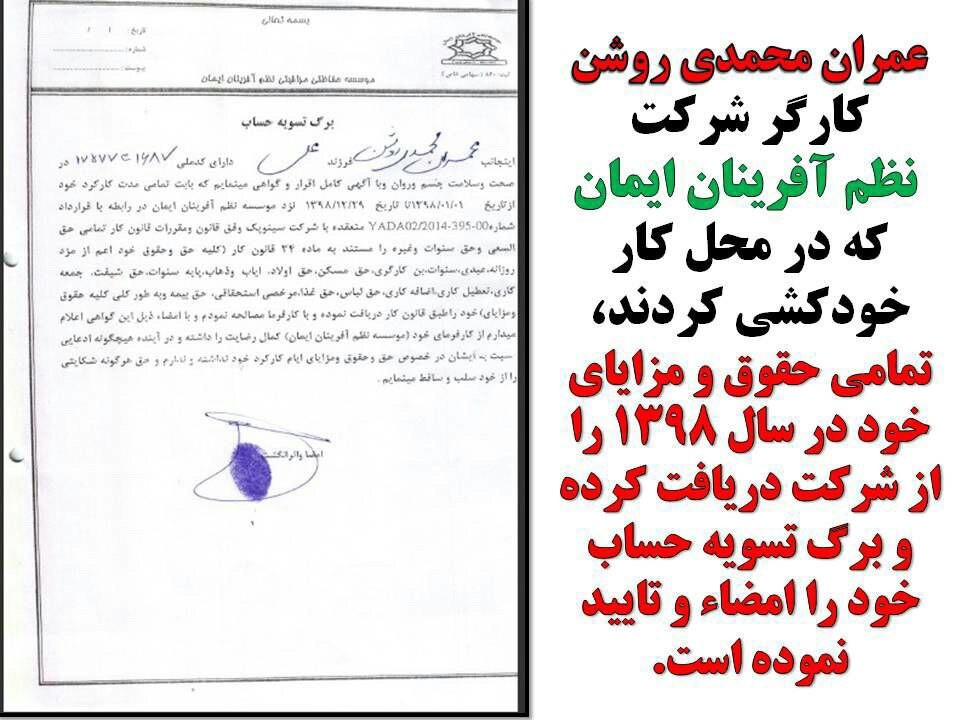 عمران محمدی روشن
کارگر شرکت
نظم آفرینان ایمان
که در محل کار
خودکشی کردند،
تمامی حقوق و مزایای
خود در سال ۱۳۹۸ را
از شرکت دریافت کرده
و برگ تسویه حساب
خود را امضاء و تایید
نموده است.
بسمه تعالی
تاریخ: / /
شماره:
پیوست:
موسسه حفاظتی مراقبتی نظم آفرینان ایمان
برگ تسویه حساب
اینجانب عمران محمدی روشن فرزند علی دارای کدملی در
صحت وسلامت جسم وروان وبا آگهی کامل اقرار و گواهی مینمایم که بابت تمامی مدت کارکرد خود
ازتاریخ ۱۳۹۸/۰۱/۰۱ تا تاریخ ۱۳۹۸/۱۲/۲۹ نزد موسسه نظم آفرینان ایمان در رابطه با قرارداد
شماره YADA02/2014-395-00 منعقده با شرکت سینوپک وفق قانون ومقررات قانون کار تمامی حق
السعی وحق سنوات وغیره را مستند به ماده ۲۴ قانون کار (کلیه حق وحقوق خود اعم از مزد
روزانه،عیدی،سنوات،بن کارگری،حق مسکن،حق اولاد، ایاب وذهاب،پایه سنوات،حق شیفت، جمعه
کاری،تعطیل کاری،اضافه کاری،حق لباس،حق غذا،مرخصی استحقاقی، حق بیمه وبه طور کلی کلیه حقوق
ومزایای) خود راطبق قانون کار دریافت نموده و با کارفرما مصالحه نمودم و با امضاء ذیل این گواهی اعلام
میدارم از کارفرمای خود (موسسه نظم آفرینان ایمان) کمال رضایت را داشته و در آینده هیچگونه ادعایی
نسبت به ایشان در خصوص حق وحقوق ومزایای ایام کارکرد خود نداشته و ندارم و حق هرگونه شکایتی
را از خود سلب و ساقط مینمایم.
امضا واثرانگشت